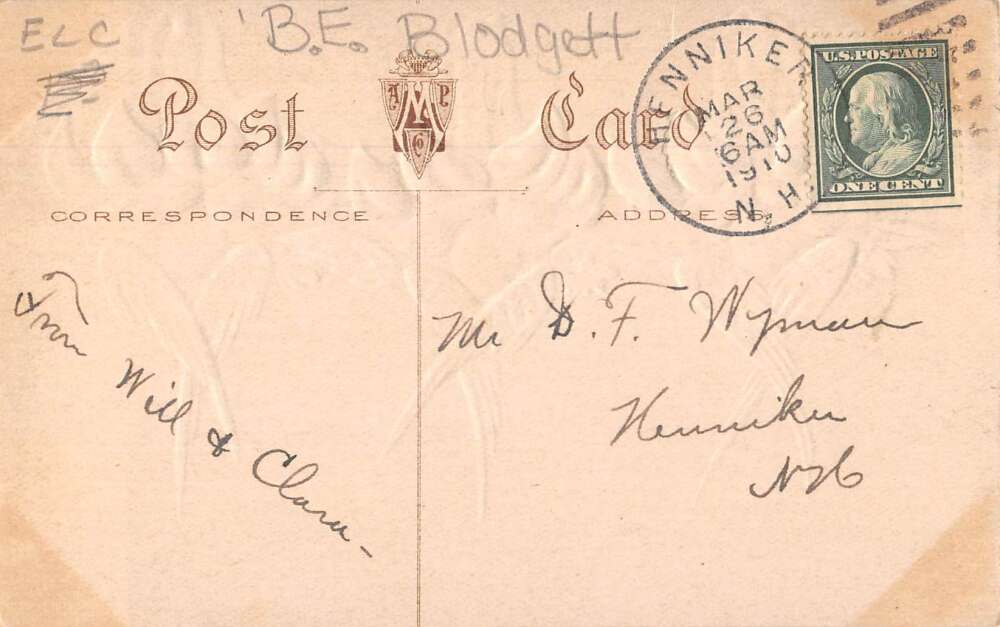 ELC
B.E. Blodgett
Post Card
AMP
Co
HENNIKER
MAR
26
6 AM
1910
N. H.
U.S. POSTAGE
ONE CENT
CORRESPONDENCE
ADDRESS
From Will & Clara -
Mr D. F. Wyman
Henniker
NH